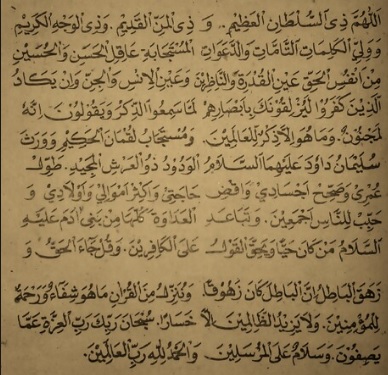 اَللّٰهُمَّ ذِي السُّلْطَانِ الْعَظِيْمِ. وَ ذِي الْمَنِّ الْقَدِيْمِ. وَذِي الْوَجْهِ الْكَرِيْمِ
وَوَلِيِّ الْكَلِمَاتِ التَّامَّاتِ وَالدَّعَوَاتِ الْمُسْتَجَابَةِ عَاقِلِ الْحَسَنِ وَالْحُسَيْنِ
مِنْ اَنْفُسِ الْحَقِّ عَيْنِ الْقُدْرَةِ وَالنَّاظِرِيْنَ وَعَيْنِ الْاِنْسِ وَالْجِنِّ وَاِنْ يَكَادُ
الَّذِيْنَ كَفَرُوْا لَيُزْلِقُوْنَكَ بِاَبْصَارِهِمْ لَمَّا سَمِعُوا الذِّكْرَ وَيَقُوْلُوْنَ اِنَّهُ
لَمَجْنُوْنٌ. وَمَا هُوَ اِلَّا ذِكْرٌ لِلْعَالَمِيْنَ. وَمُسْتَجَابُ لُقْمَانَ الْحَكِيْمِ وَوَرِثَ
سُلَيْمَانُ دَاوُدَ عَلَيْهِمَا السَّلَامُ الْوَدُوْدُ ذُو الْعَرْشِ الْمَجِيْدِ. طَوِّلْ
عُمْرِيْ وَصَحِّحْ اَجْسَادِيْ وَاقْضِ حَاجَتِيْ وَاَكْثِرْ اَمْوَالِيْ وَاَوْلَادِيْ وَ
حَبِّبْ لِلنَّاسِ اَجْمَعِيْنَ. وَتَبَاعَدِ الْعَدَاوَةَ كُلَّهَا مِنْ بَنِيْ اٰدَمَ عَلَيْهِ
السَّلَامُ مَنْ كَانَ حَيًّا وَيَحِقَّ الْقَوْلُ عَلَى الْكَافِرِيْنَ. وَقُلْ جَاءَ الْحَقُّ وَ
زَهَقَ الْبَاطِلُ اِنَّ الْبَاطِلَ كَانَ زَهُوْقًا. وَنُنَزِّلُ مِنَ الْقُرْاٰنِ مَا هُوَ شِفَاءٌ وَرَحْمَةٌ
لِلْمُؤْمِنِيْنَ. وَلَا يَزِيْدُ الظَّالِمِيْنَ اِلَّا خَسَارًا. سُبْحَانَ رَبِّكَ رَبِّ الْعِزَّةِ عَمَّا
يَصِفُوْنَ. وَسَلَامٌ عَلَى الْمُرْسَلِيْنَ وَالْحَمْدُ لِلّٰهِ رَبِّ الْعَالَمِيْنَ.